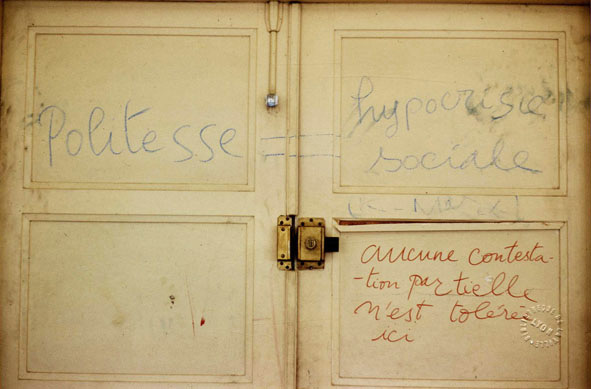 Politesse = hypocrisie
sociale
aucune contesta-
-tion partielle
n'est tolérée
ici